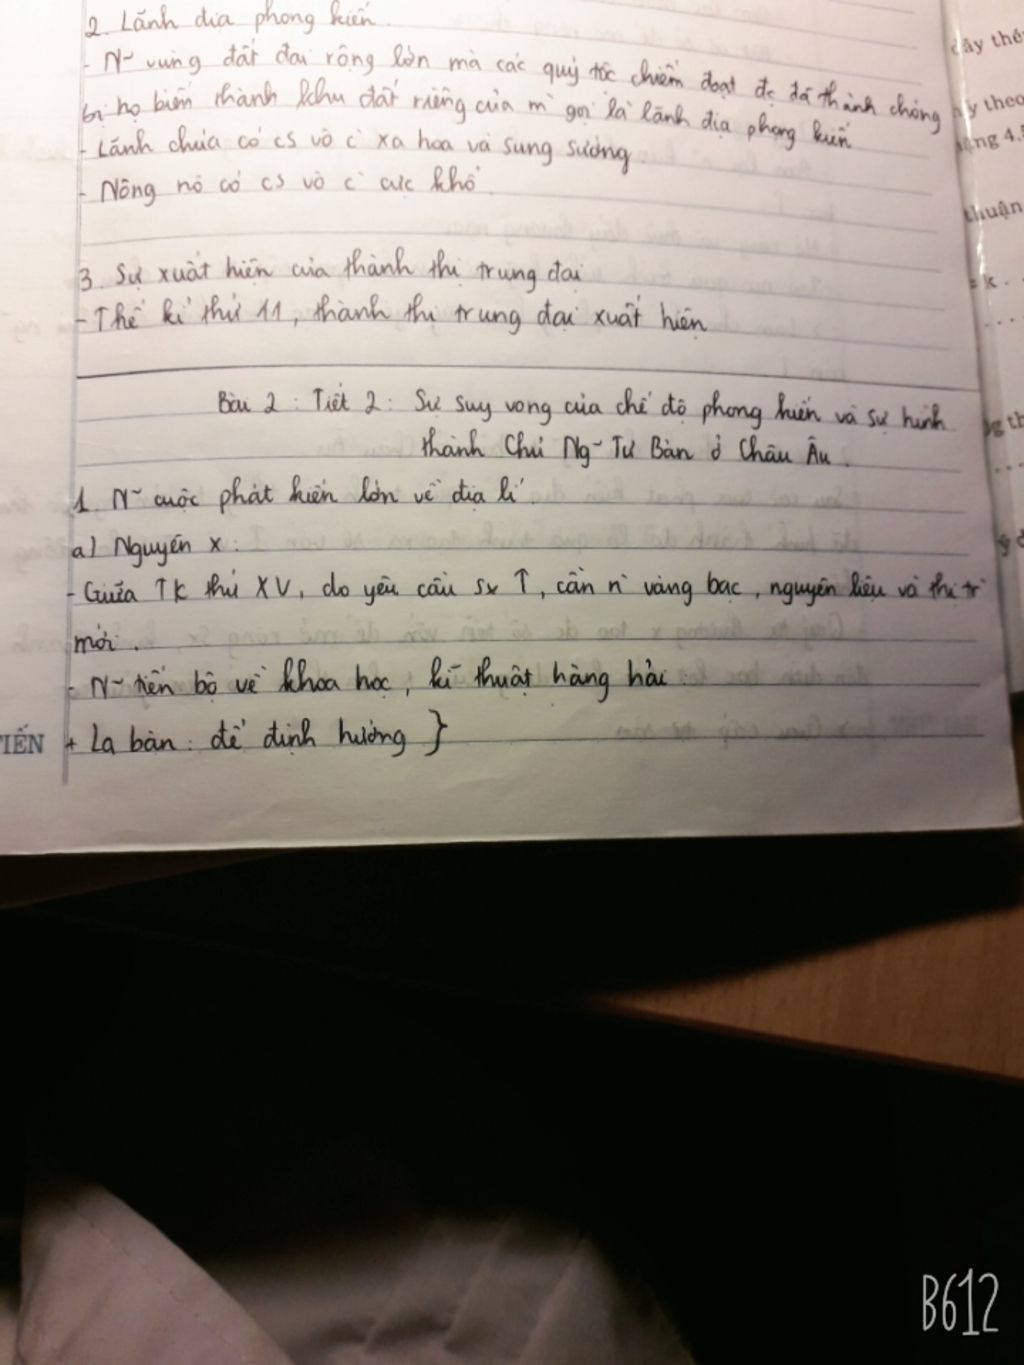 2. Lãnh địa phong kiến.
- N~ vùng đất đai rộng lớn mà các quý tộc chiếm đoạt đc đã thành chóng
bị họ biến thành khu đất riêng của m` gọi là lãnh địa phong kiến
- Lãnh chúa có cs vô c` xa hoa và sung sướng
- Nông nô có cs vô c` cực khổ.
3. Sự xuất hiện của thành thị trung đại
- Thế kỉ thứ 11, thành thị trung đại xuất hiện
Bài 2: Tiết 2: Sự suy vong của chế độ phong kiến và sự hình
thành Chủ Ng~ Tư Bản ở Châu Âu.
1. N~ cuộc phát kiến lớn về địa lí.
a) Nguyên x:
- Giữa TK thứ XV, do yêu cầu sx ↑, cần n` vàng bạc, nguyên liệu và thị tr`
mới.
- N~ tiến bộ về khoa học, kĩ thuật hàng hải:
+ La bàn: để định hướng }
IẾN
dây
theo
4.5
thuận
k.
B612